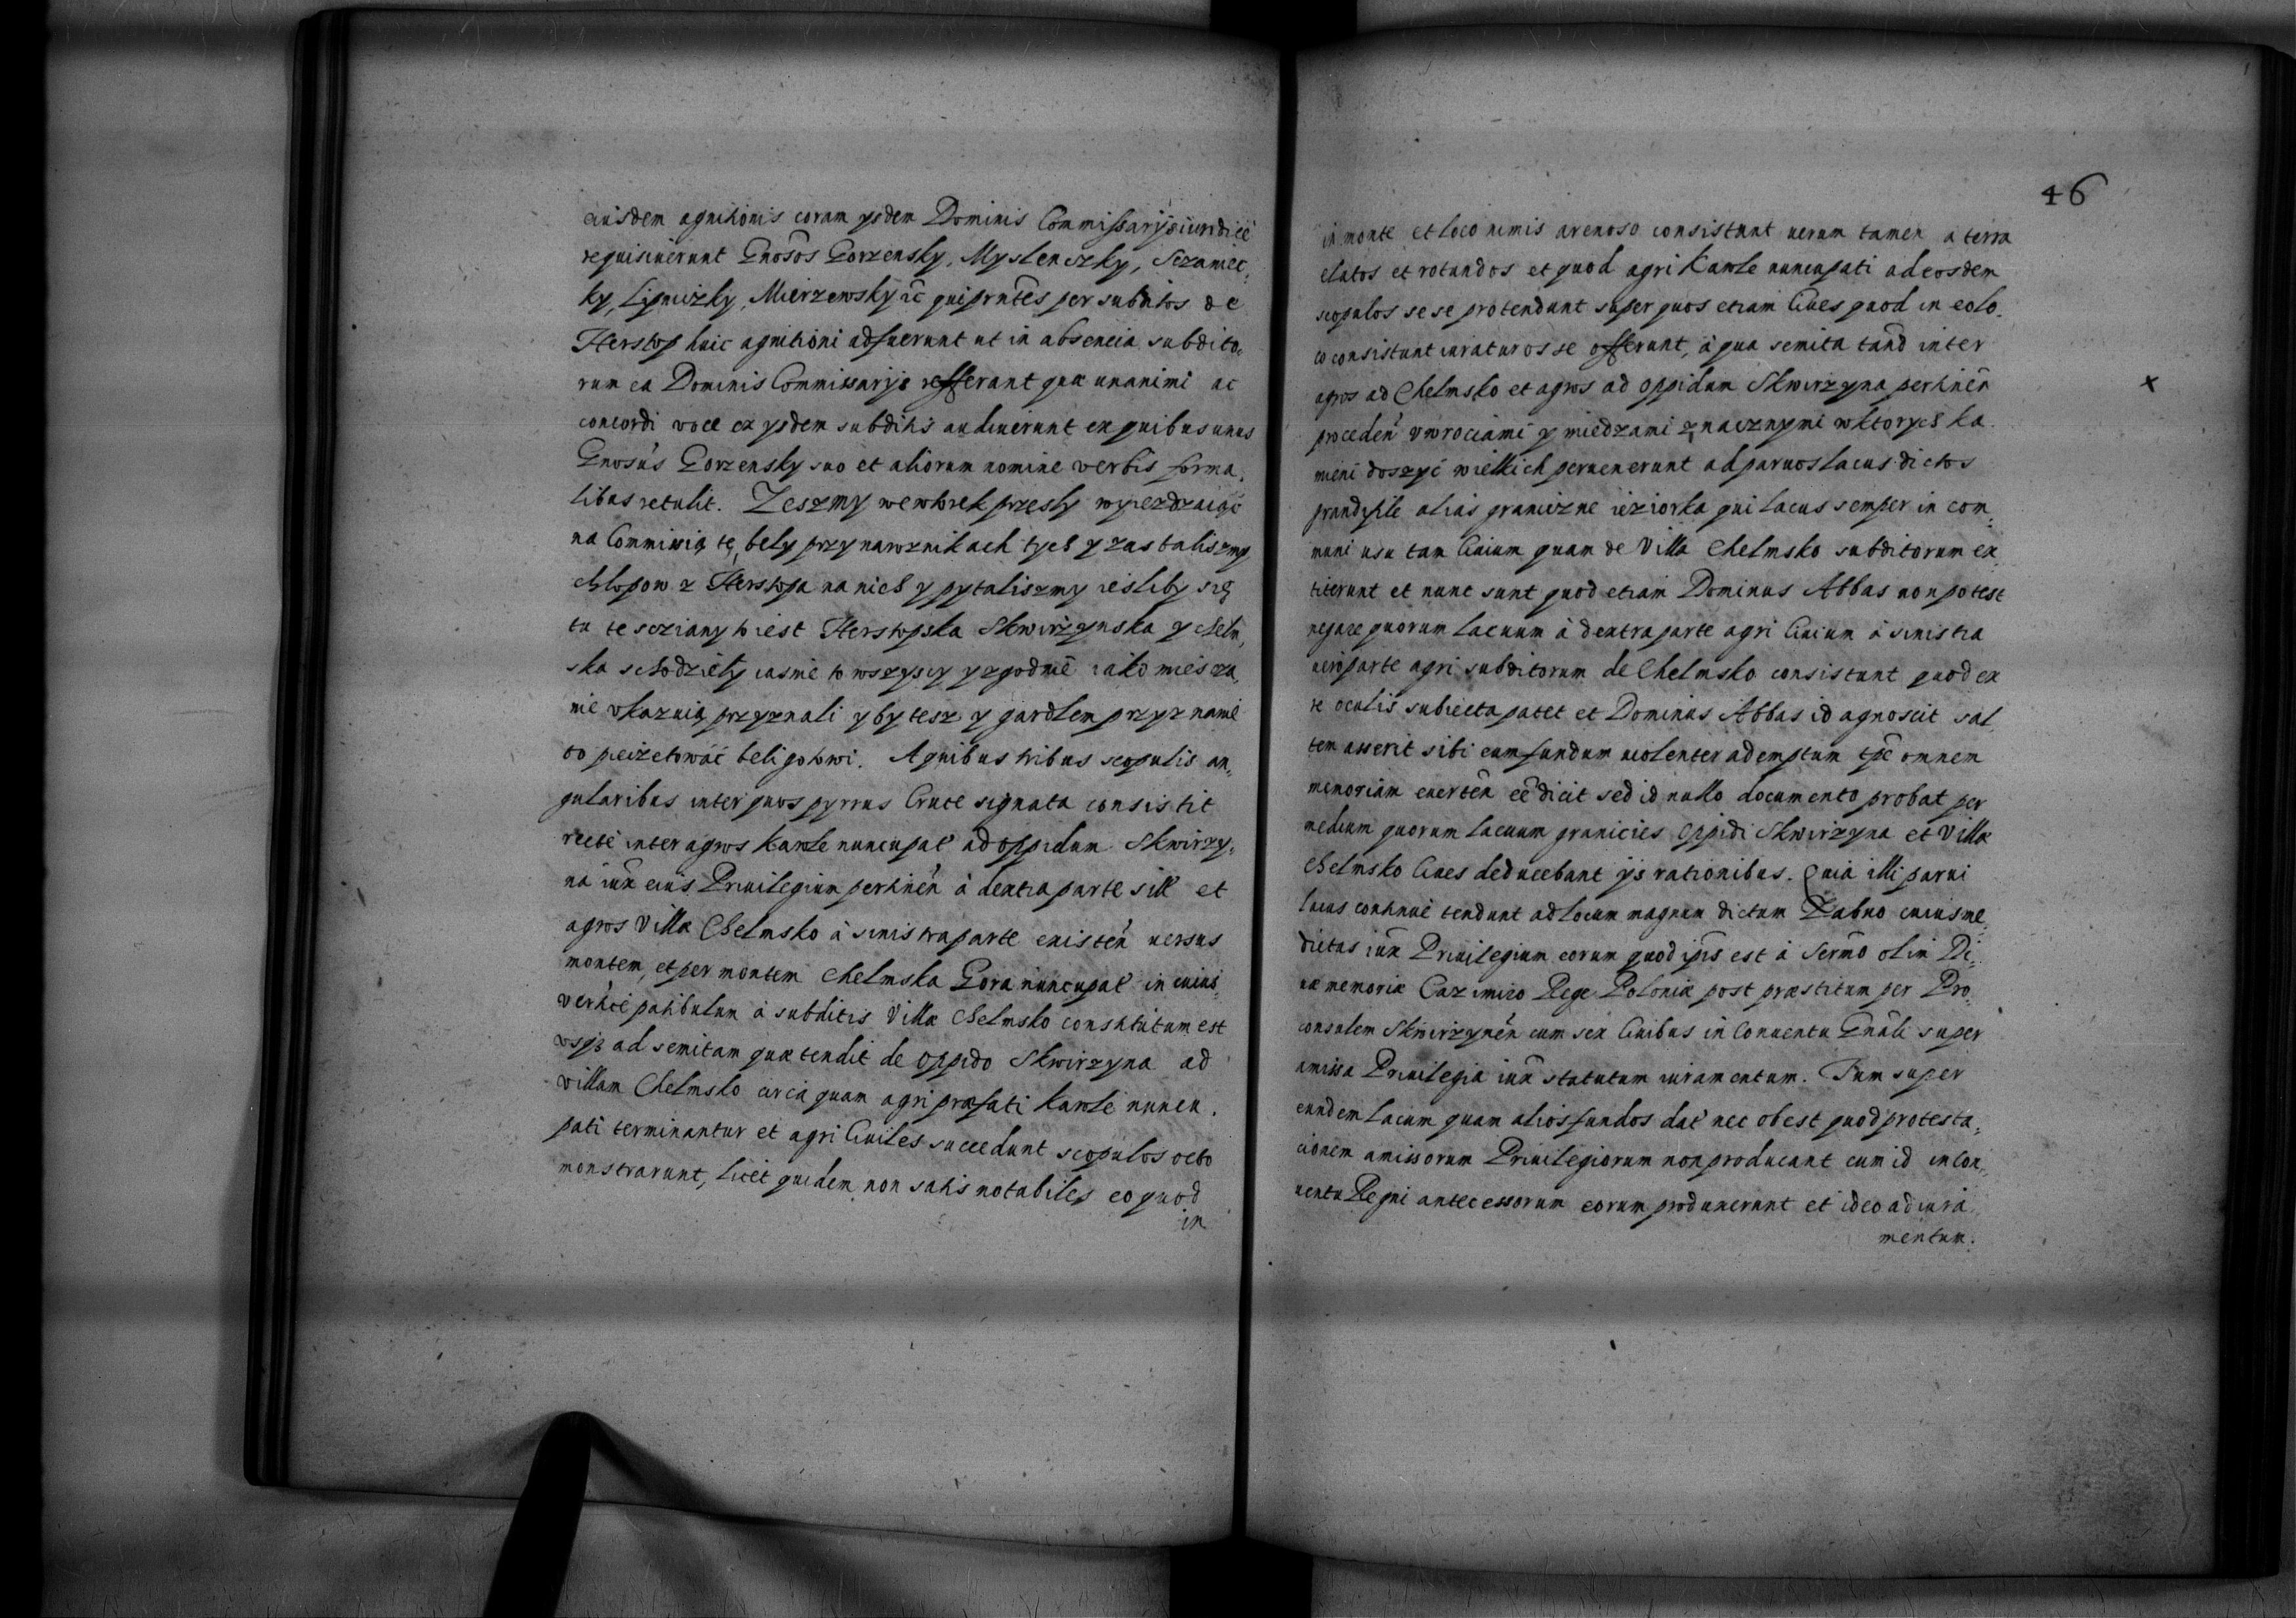 eiusdem agnitionis coram ysdem Dominis Commissarijs iuridicè
requisiuerunt Gnõsos Gorzensky, Myslenszky, Sezaniec„
ky, Lipnizky, Mierzewsky &c̃ qui prñtes per subditos de
Herstop huic agnitioni adfuerunt ut in absencia subdito„
rum ea Dominis Commissarijs refferant quæ unanimi ac
concordi voce ex ysdem subditis audiuerunt ex quibus unus
Gnosùs Gorzensky suo et aliorum nomine verbis forma„
libus retulit. Zeszmy we wtorek przesly wyiezdzaiąc
na Commissią tę bely przy narożnikach tych y zastaliszmy
chlopow z Herstopa na nich y pytaliszmy iesliby się
tu te sciany to iest Herstopska Skwirzynska y Chelm„
ska schodziely iasnie to wszyscy y zgodnie iako miescza„
nie vkazuią przyznali y by tesz y gardlem przyznanie
to pieczetować beli gotowi. A quibus tribus scopulis an„
gularibus inter quos pyrrus Cruce signata consistit
recte inter agros Kawle nuncupat̃ ad oppidum Skwirzy„
na iux̃ eius Priuilegium pertineñ à dextra parte sitt et
agros Villæ Chelmsko à sinistra parte existeñ versus
montem, et per montem Chelmska Gora nuncupat̃ in cuius
vertice patibulum à subditis Villæ Chelmsko constitutum est
vsq3 ad semitam quæ tendit de oppido Skwirzyna ad
villam Chelmsko circa quam agri præfati Kawle nuncu„
pati terminantur et agri Ciuiles succedunt scopulos octo
monstrarunt, licet quidem non satis notabiles eo quod
in
46
in monte et loco nimis arenoso consistunt uerum tamen à terra
elatos et rotundos et quod agri Kawle nuncupati ad eosdem
scopulos se se protendunt super quos etiam Ciues quod in eo lo„
co consistunt iuraturos se offerunt, à qua semita tand̃ inter
agros ad Chelmsko et agros ad oppidum Skwirzyna pertineñ x
procedeñ vwrociami y miedzami znacznymi w ktorych ka„
mieni doszyć wielkich peruenerunt ad paruos lacus dictos
granicżne ieziorka qui lacus semper in com„
muni usu tam Ciuium quam de Villa Chelmsko subditorum ex„
titerunt et nunc sunt quod etiam Dominus Abbas non potest
negare quorum lacuum à dextra parte agri Ciuium à sinistra
uero parte agri subditorum de Chelmsko consistunt quod ex
re oculis subiecta patet et Dominus Abbas id agnoscit sal„
tem asserit sibi eum fundum uiolenter ademptum tp̃e omnem
memoriam exerteñ eẽ dicit sed id nullo documento probat per
medium quorum lacuum granicies oppidi Skwirzyna et Villæ
Chelmsko Ciues deducebant ijs rationibus. Quia illi parui
lacus continuè tendunt ad locum magnum dictum Zabno cuius me„
dietas iux̃ Priuilegium eorum quod ip̃is est à Serm̃o olim Di„
uæ memoriæ Cazimiro Rege Poloniæ post præstitum per Pro„
consulem Skwirzyneñ cum sex Ciuibus in Conuentu Gnãli super
amissa Priuilegia iux̃ statutum iuramentum. Tum super
eundem lacum quam alios fundos dat̃ nec obest quod protesta„
cionem amissorum Priuilegiorum non producant cum id in Con„
uentu Regni antecessorum eorum produxerunt et ideo ad iura
mentum.